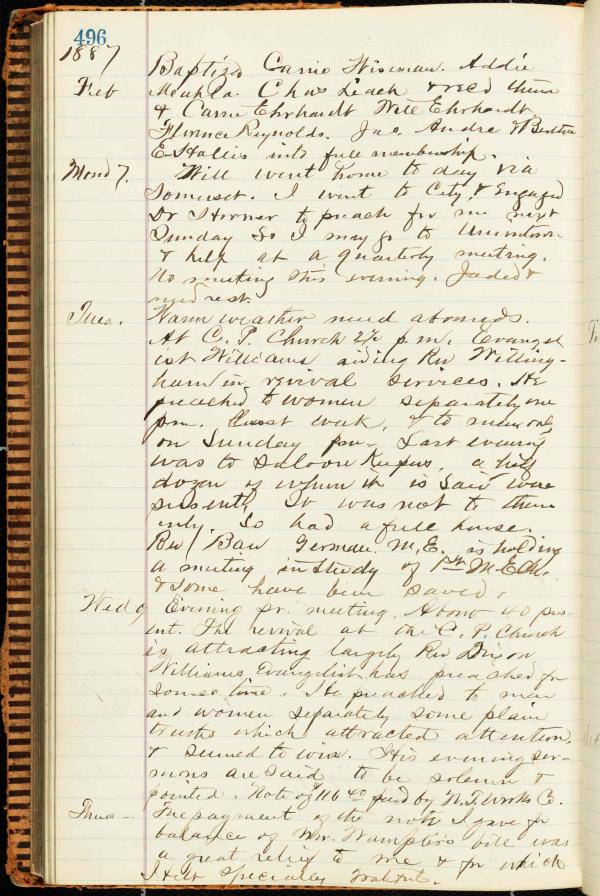 496
1887 Baptized Carrie Wiseman. Addie
Feb Chas Leach & rec'd them
& Carrie Ehrhardt Will Ehrhardt
Florence Reynolds. Jas. Andre & Bertha
E Hallis into full membership.
Mond 7. Will went home to day via
Somerset. I went to City & Engaged
Dr Horner to preach for me next
Sunday so I may go to Uniontown
& help at a quarterly meeting.
No meeting this evening. Jaded &
need rest.
Tues. Warm weather mud abounds.
At C. P. Church 2½ p.m. Evangel
ist Williams aiding Rev Willing-
ham in revival services. He
preached to women separately one
pm. last week, & to men only
on Sunday pm- Last evening
was to Saloon Keepers, a half
dozen of whom it is said were
present. It was not to them
only. So had a full house.
Rev Baw German. M.E. is holding
a meeting in study of 1st M.E.Ch.
& some have been saved.
Wed 9 Evening pr. meeting. About 40 pres-
ent. The revival at the C. P. Church
is attracting largely Rev Dixon
Williams Evangelist has preached for
some time. He preached to men
and women separately some plain
truths which attracted attention,
& seemed to win. His evening ser-
mons are said to be solemn &
pointed. Note of $116 40 paid by N.T. Works Co.
Thurs - The payment of the note I gave for
balance of Mr. Wampler's bill was
a great relief to me & for which
I felt specially grateful.